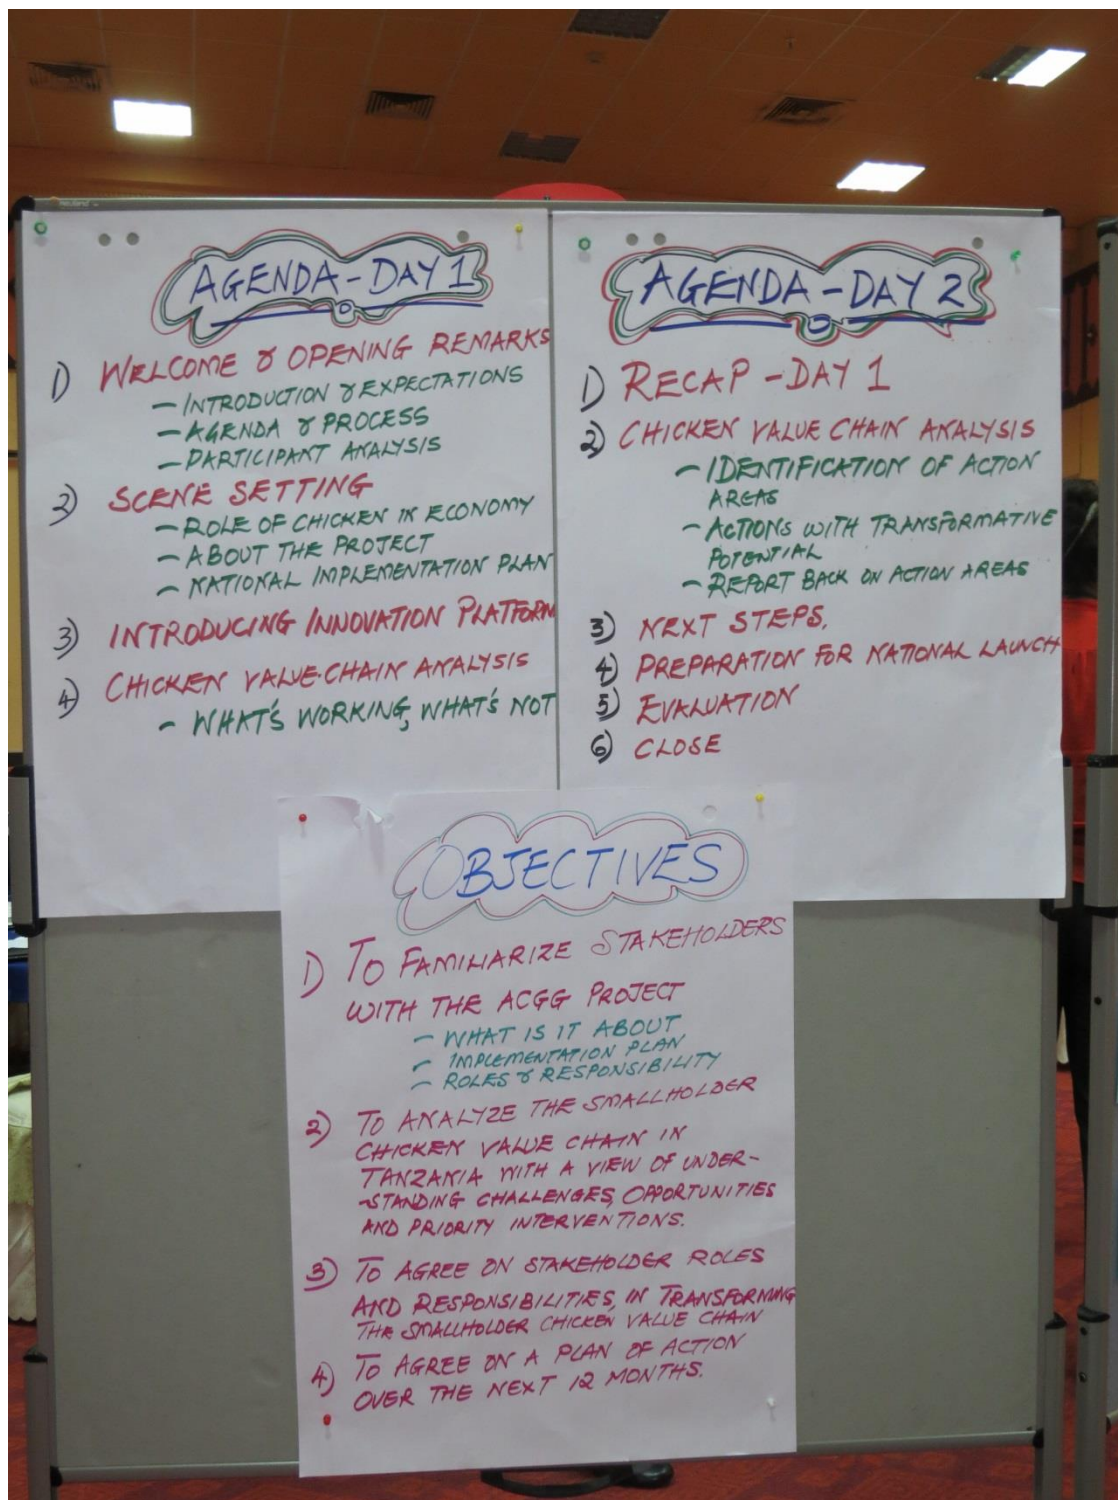 AGENDA - DAY 1
1) WELCOME & OPENING REMARKS
- INTRODUCTION & EXPECTATIONS
- AGENDA & PROCESS
- PARTICIPANT ANALYSIS
2) SCENE SETTING
- ROLE OF CHICKEN IN ECONOMY
- ABOUT THE PROJECT
- NATIONAL IMPLEMENTATION PLAN
3) INTRODUCING INNOVATION PLATFORM
4) CHICKEN VALUE-CHAIN ANALYSIS
- WHAT'S WORKING, WHAT'S NOT
AGENDA - DAY 2
1) RECAP - DAY 1
2) CHICKEN VALUE CHAIN ANALYSIS
- IDENTIFICATION OF ACTION
AREAS
- ACTIONS WITH TRANSFORMATIVE
POTENTIAL
- REPORT BACK ON ACTION AREAS
3) NEXT STEPS.
4) PREPARATION FOR NATIONAL LAUNCH
5) EVALUATION
6) CLOSE
OBJECTIVES
1) TO FAMILIARIZE STAKEHOLDERS
WITH THE ACGG PROJECT
- WHAT IS IT ABOUT
- IMPLEMENTATION PLAN
- ROLES & RESPONSIBILITY
2) TO ANALYZE THE SMALLHOLDER
CHICKEN VALUE CHAIN IN
TANZANIA WITH A VIEW OF UNDER-
-STANDING CHALLENGES, OPPORTUNITIES
AND PRIORITY INTERVENTIONS.
3) TO AGREE ON STAKEHOLDER ROLES
AND RESPONSIBILITIES, IN TRANSFORMING
THE SMALLHOLDER CHICKEN VALUE CHAIN
4) TO AGREE ON A PLAN OF ACTION
OVER THE NEXT 12 MONTHS.